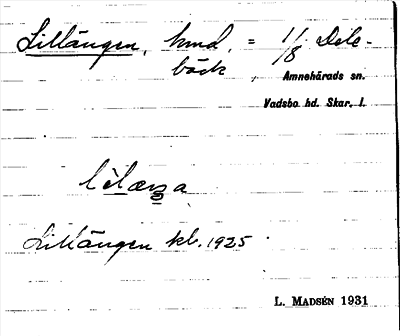 Lillängen, hmd, = 1/8 Dele-
bäck, Amnehärads sn.
Vadsbo hd. Skar. l.
Lillängen kb. 1925
L. MADSÉN 1931